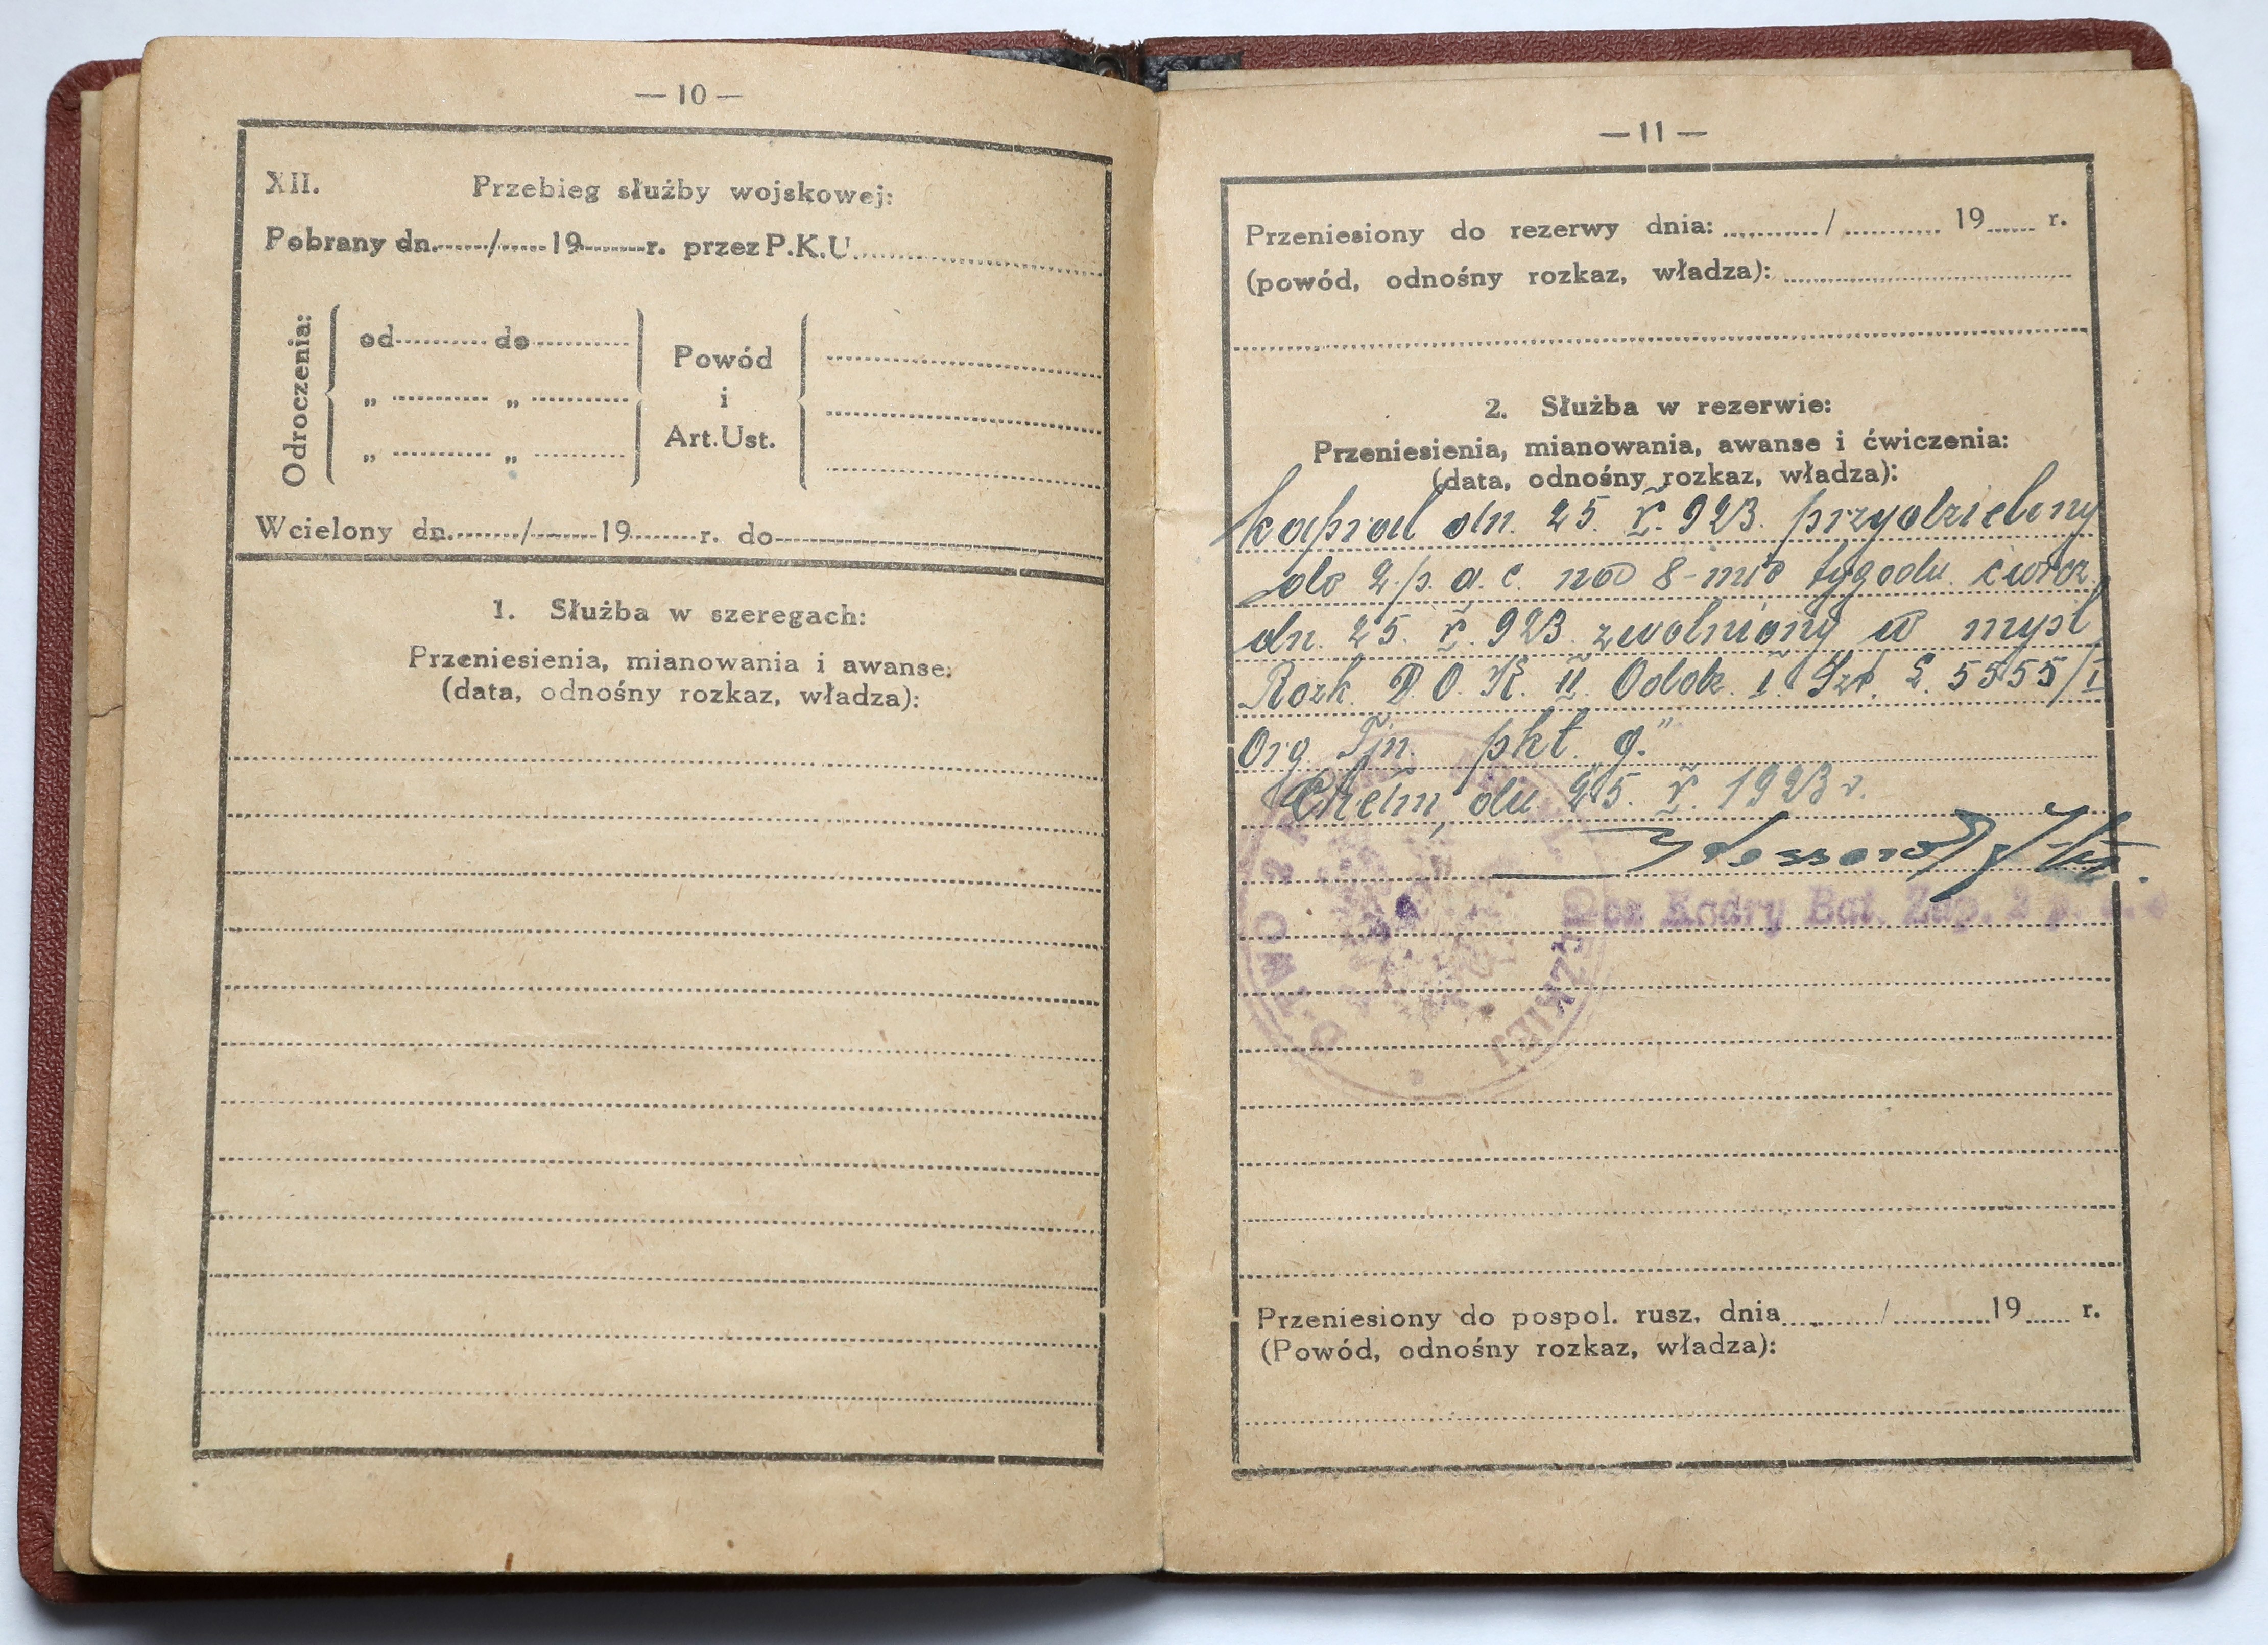 — 10 —
XII. Przebieg służby wojskowej:
Pobrany dn. / 19 r. przez P.K.U.
Odroczenia:
od do
„ „
„ „
Powód
i
Art. Ust.
Wcielony dn. / 19 r. do
1. Służba w szeregach:
Przeniesienia, mianowania i awanse:
(data, odnośny rozkaz, władza):
— 11 —
Przeniesiony do rezerwy dnia: / 19 r.
(powód, odnośny rozkaz, władza):
2. Służba w rezerwie:
Przeniesienia, mianowania, awanse i ćwiczenia:
(data, odnośny rozkaz, władza):
kapral dn. 25. V. 923. przydzielony
do 2 p. a. c. na 8-mio tygodn. ćwicz.
dn. 25. V. 923. zwolniony w myśl
Rozk. D. O. K. II. Oddz. I. Szt. L. 5555/I
Org. Tjn. pkt. g."
Chełm, dn. 25. V. 1923 r.
Kadry Bat. Zap. 2 p. a. c
Przeniesiony do pospol. rusz, dnia / 19 r.
(Powód, odnośny rozkaz, władza):